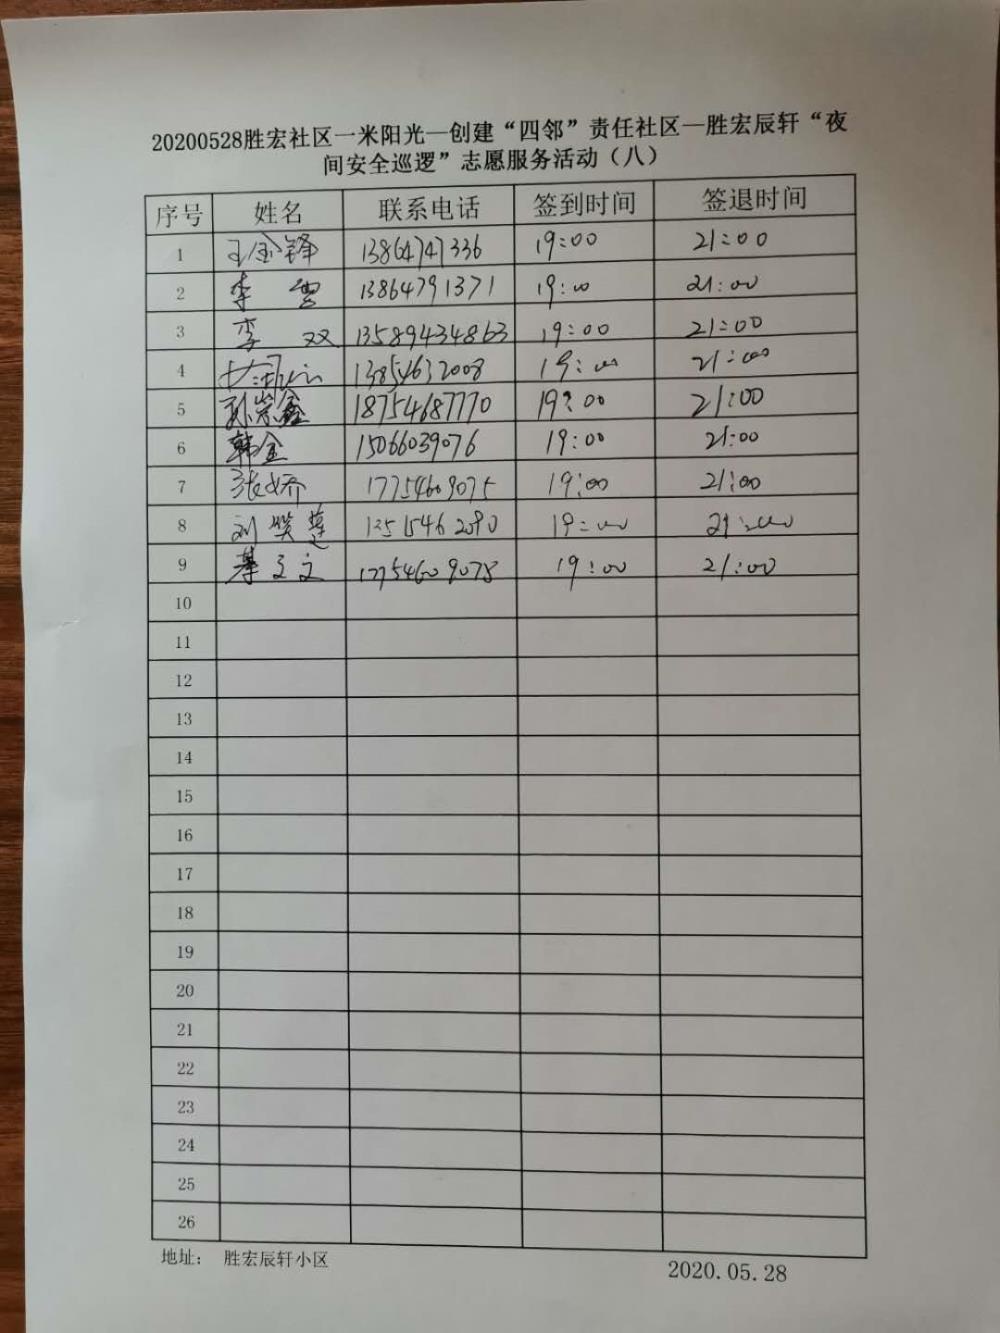 20200528胜宏社区一米阳光—创建“四邻”责任社区—胜宏辰轩“夜
间安全巡逻”志愿服务活动（八）
序号 姓名 联系电话 签到时间 签退时间
1 王金铎 13864747336 19:00 21:00
2 李雪 13864791371 19:00 21:00
3 李双 13589434863 19:00 21:00
4 13854632008 19:00 21:00
5 孙崇鑫 18754687770 19:00 21:00
6 韩金 15066039076 19:00 21:00
7 张娇 17754609075 19:00 21:00
8 刘笑莲 19:00 21:00
9 綦文文 17754609078 19:00 21:00
10
11
12
13
14
15
16
17
18
19
20
21
22
23
24
25
26
地址： 胜宏辰轩小区
2020.05.28